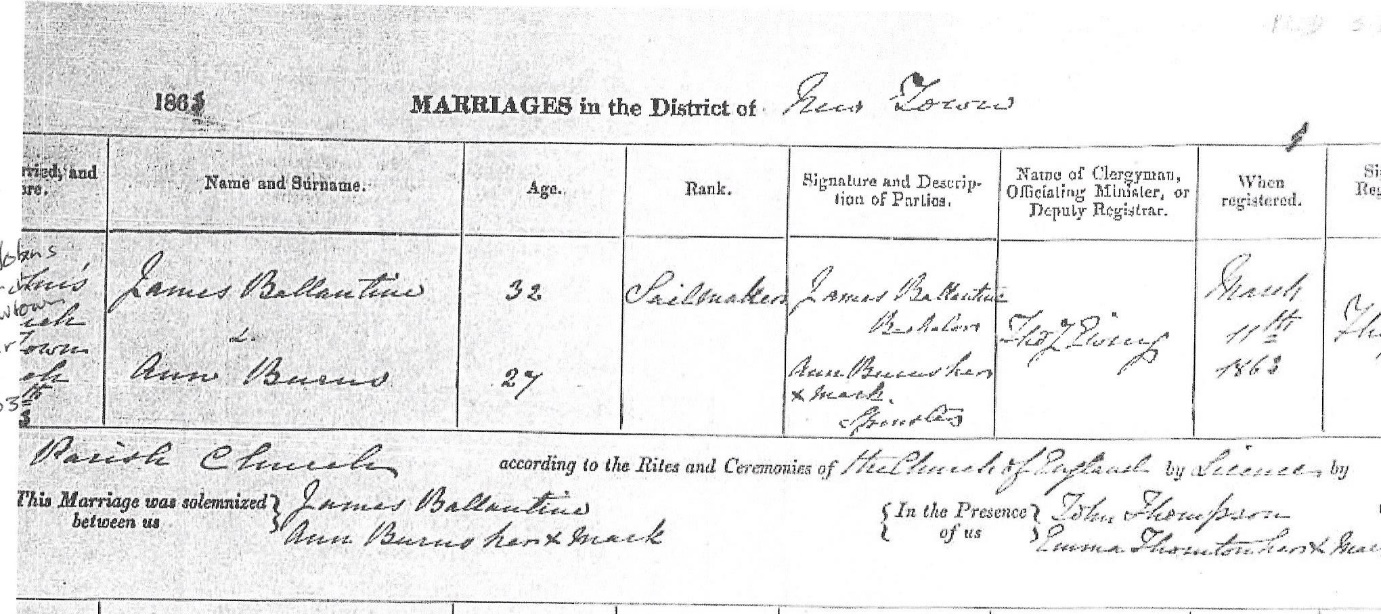 1863 MARRIAGES in the District of New Town
rried, and
ore.
Name and Surname.
Age.
Rank.
Signature and Descrip-
tion of Parties.
Name of Clergyman,
Officiating Minister, or
Deputy Registrar.
When
registered.
Si
Reg
James Ballantine
&
Ann Burns
32
27
Sailmaker
James Ballantine
Bachelor
Ann Burns her
x mark.
Spinster
March
11th
1863
Parish Church according to the Rites and Ceremonies of the Church of England by Licence by
This Marriage was solemnized
between us
James Ballantine
Ann Burns her x mark
In the Presence
of us
John Thompson
Emma Thornton her x Mar